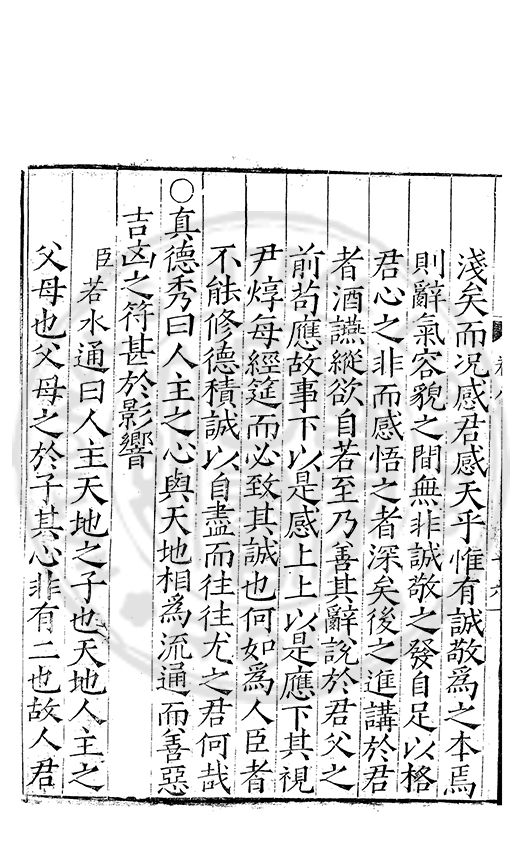 淺矣而况感君感天乎惟有誠敬爲之本焉
則辭氣容貌之間無非誠敬之發自足以格
君心之非而感悟之者深矣後之進講於君
者酒讌縱欲自若至乃善其辭說於君父之
前茍應故事下以是感上上以是應下其視
尹焞每經筵而必致其誠也何如爲人臣者
不能修德積誠以自盡而往往尤之君何哉
○真德秀曰人主之心與天地相爲流通而善惡
吉凶之符甚於影響
臣若水通曰人主天地之子也天地人主之
父母也父母之於子其心非有二也故人君